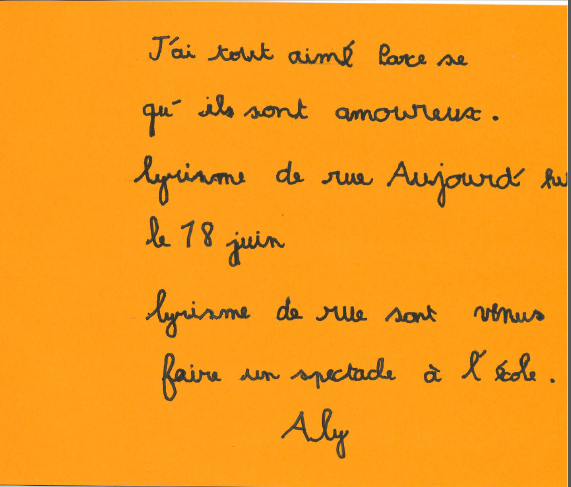 J'ai tout aimé Parce se
qu' ils sont amoureux.
lyrisme de rue Aujourd' hu
le 18 juin
lyrisme de rue sont venus
faire un spectacle à l' école.
Aly